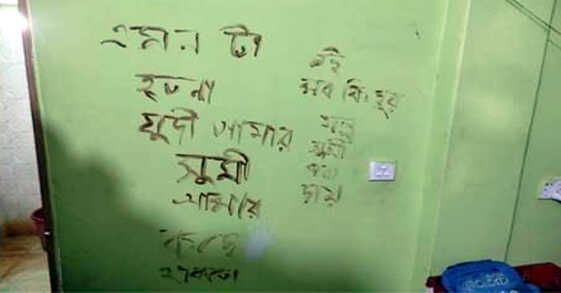 এমন টা
হতনা
যুদী আমার
সুমী
আমার
কাছে
থাকতো
এই
সব কিছুর
জন্য
সুমী
দায়